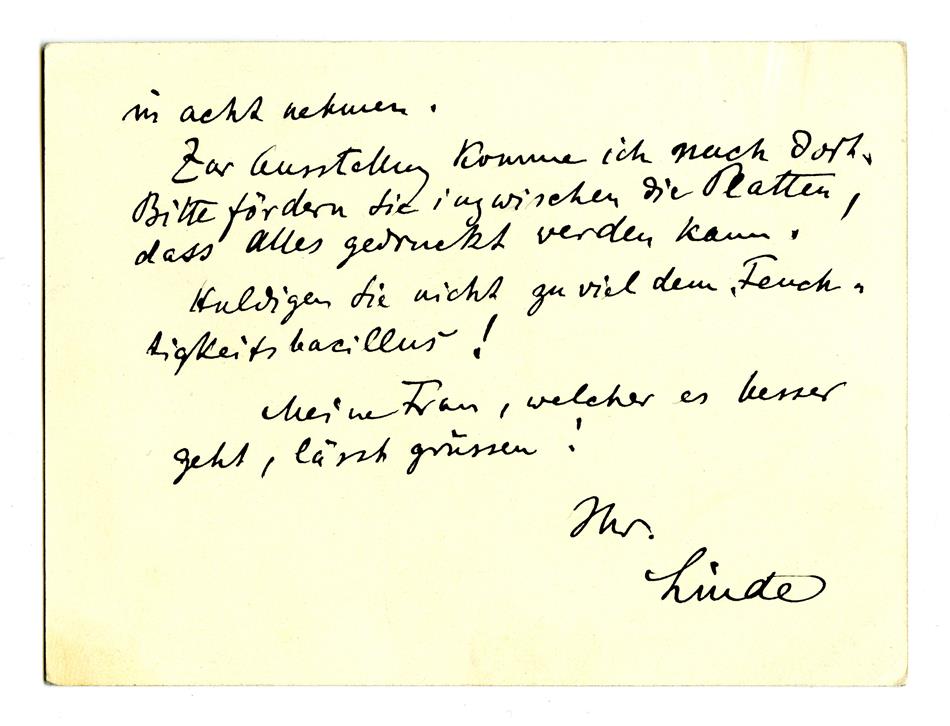 in acht nehmen.
Zur Ausstellung komme ich nach dort.
Bitte fördern Sie inzwischen die Platten,
dass alles gedruckt werden kann.
Huldigen Sie nicht zu viel dem Feuch-
tigkeitsbacillus!
Meine Frau, welcher es besser
geht, lässt grüssen!
Ihr.
Linde